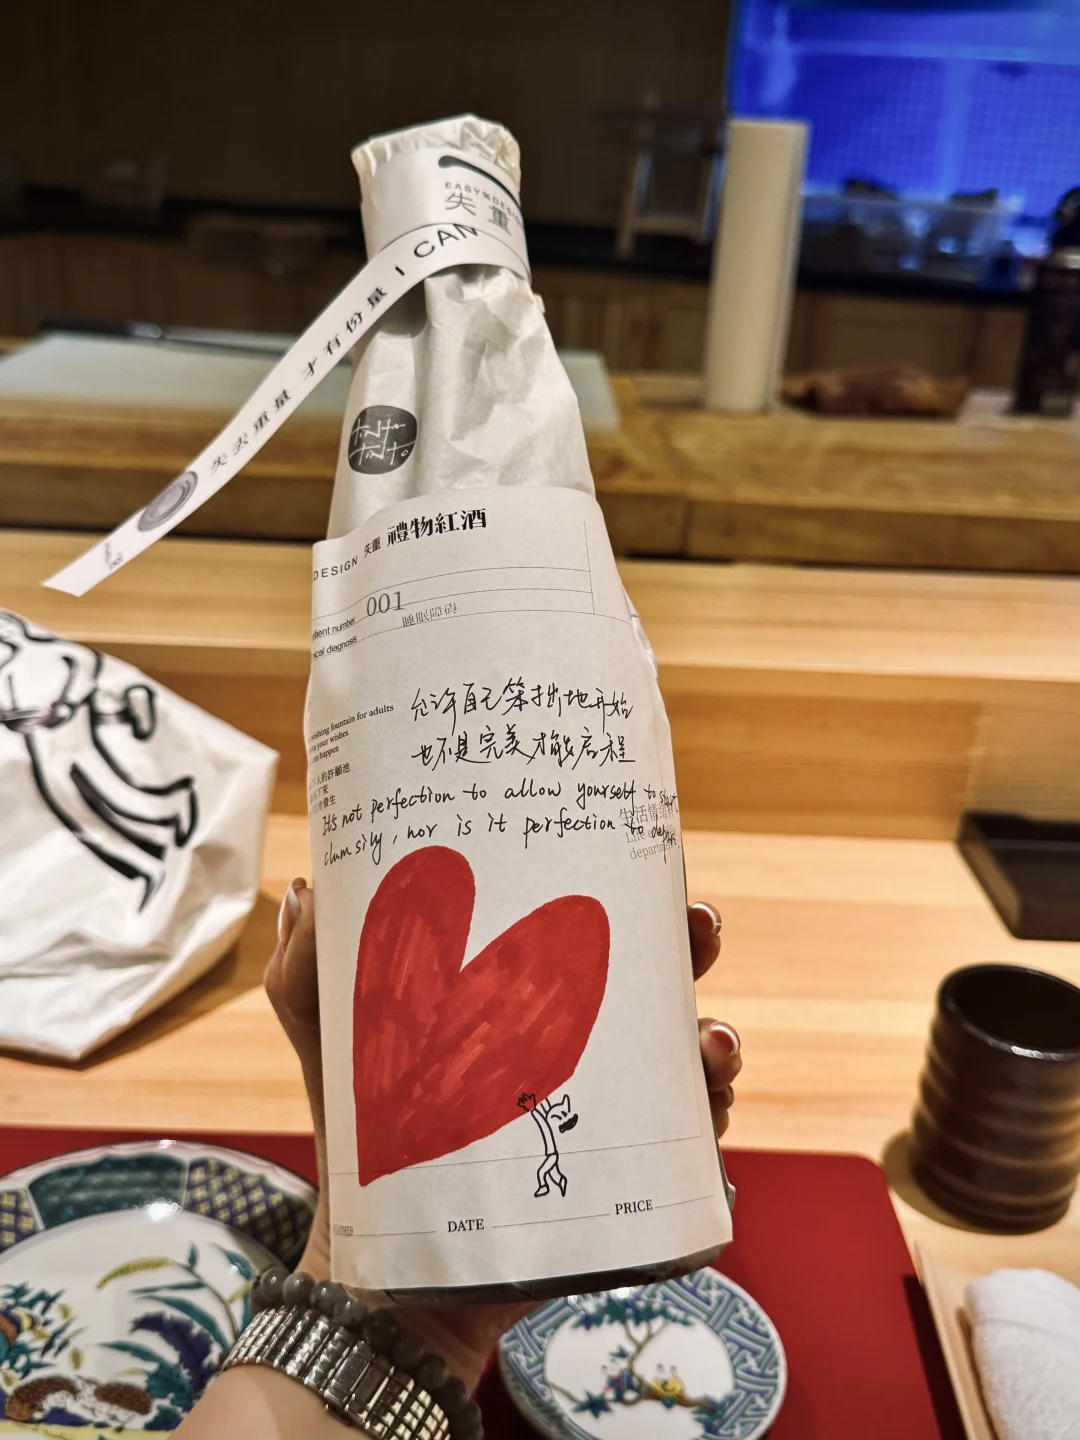 失重
I CAN
失去重量 才有份量
DESIGN 失重 禮物紅酒
001
睡眠障碍
wishing fountain for adults
your wishes
happen
人的許願池
允许自己笨拙地开始
也不是完美才能启程
It's not perfection to allow yourself to start
clumsily, nor is it perfection to depart
生活情緒
DATE
PRICE